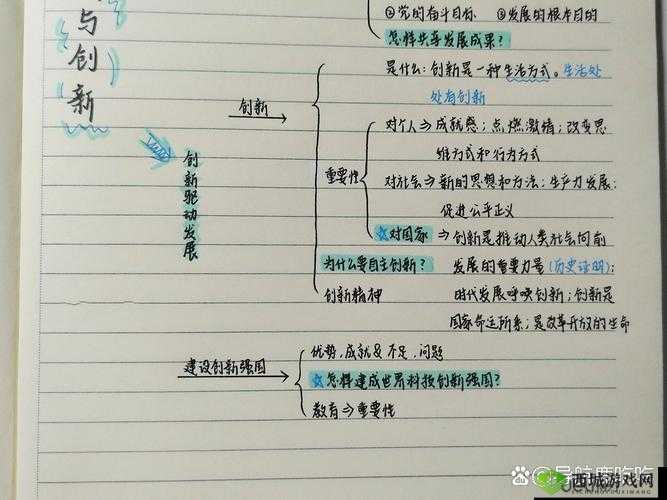 ②党的奋斗目标 ③发展的根本目的
怎样共享发展成果?
与创新
是什么:创新是一种生活方式。生活处
处有创新
创新
对个人⇒成就感;点燃激情;改变思
维方式和行为方式
创新驱动发展
重要性
对社会⇒新的思想和方法;生产力发展;
促进公平正义
☆对国家⇒创新是推动人类社会向前
为什么要自主创新? 发展的重要力量(历史证明);
创新精神 时代发展呼唤创新;创新是
国家命运所系;是改革开放的生命
优势、成就&不足、问题
建设创新强国
☆怎样建成世界科技创新强国?
教育⇒重要性
西城游戏网